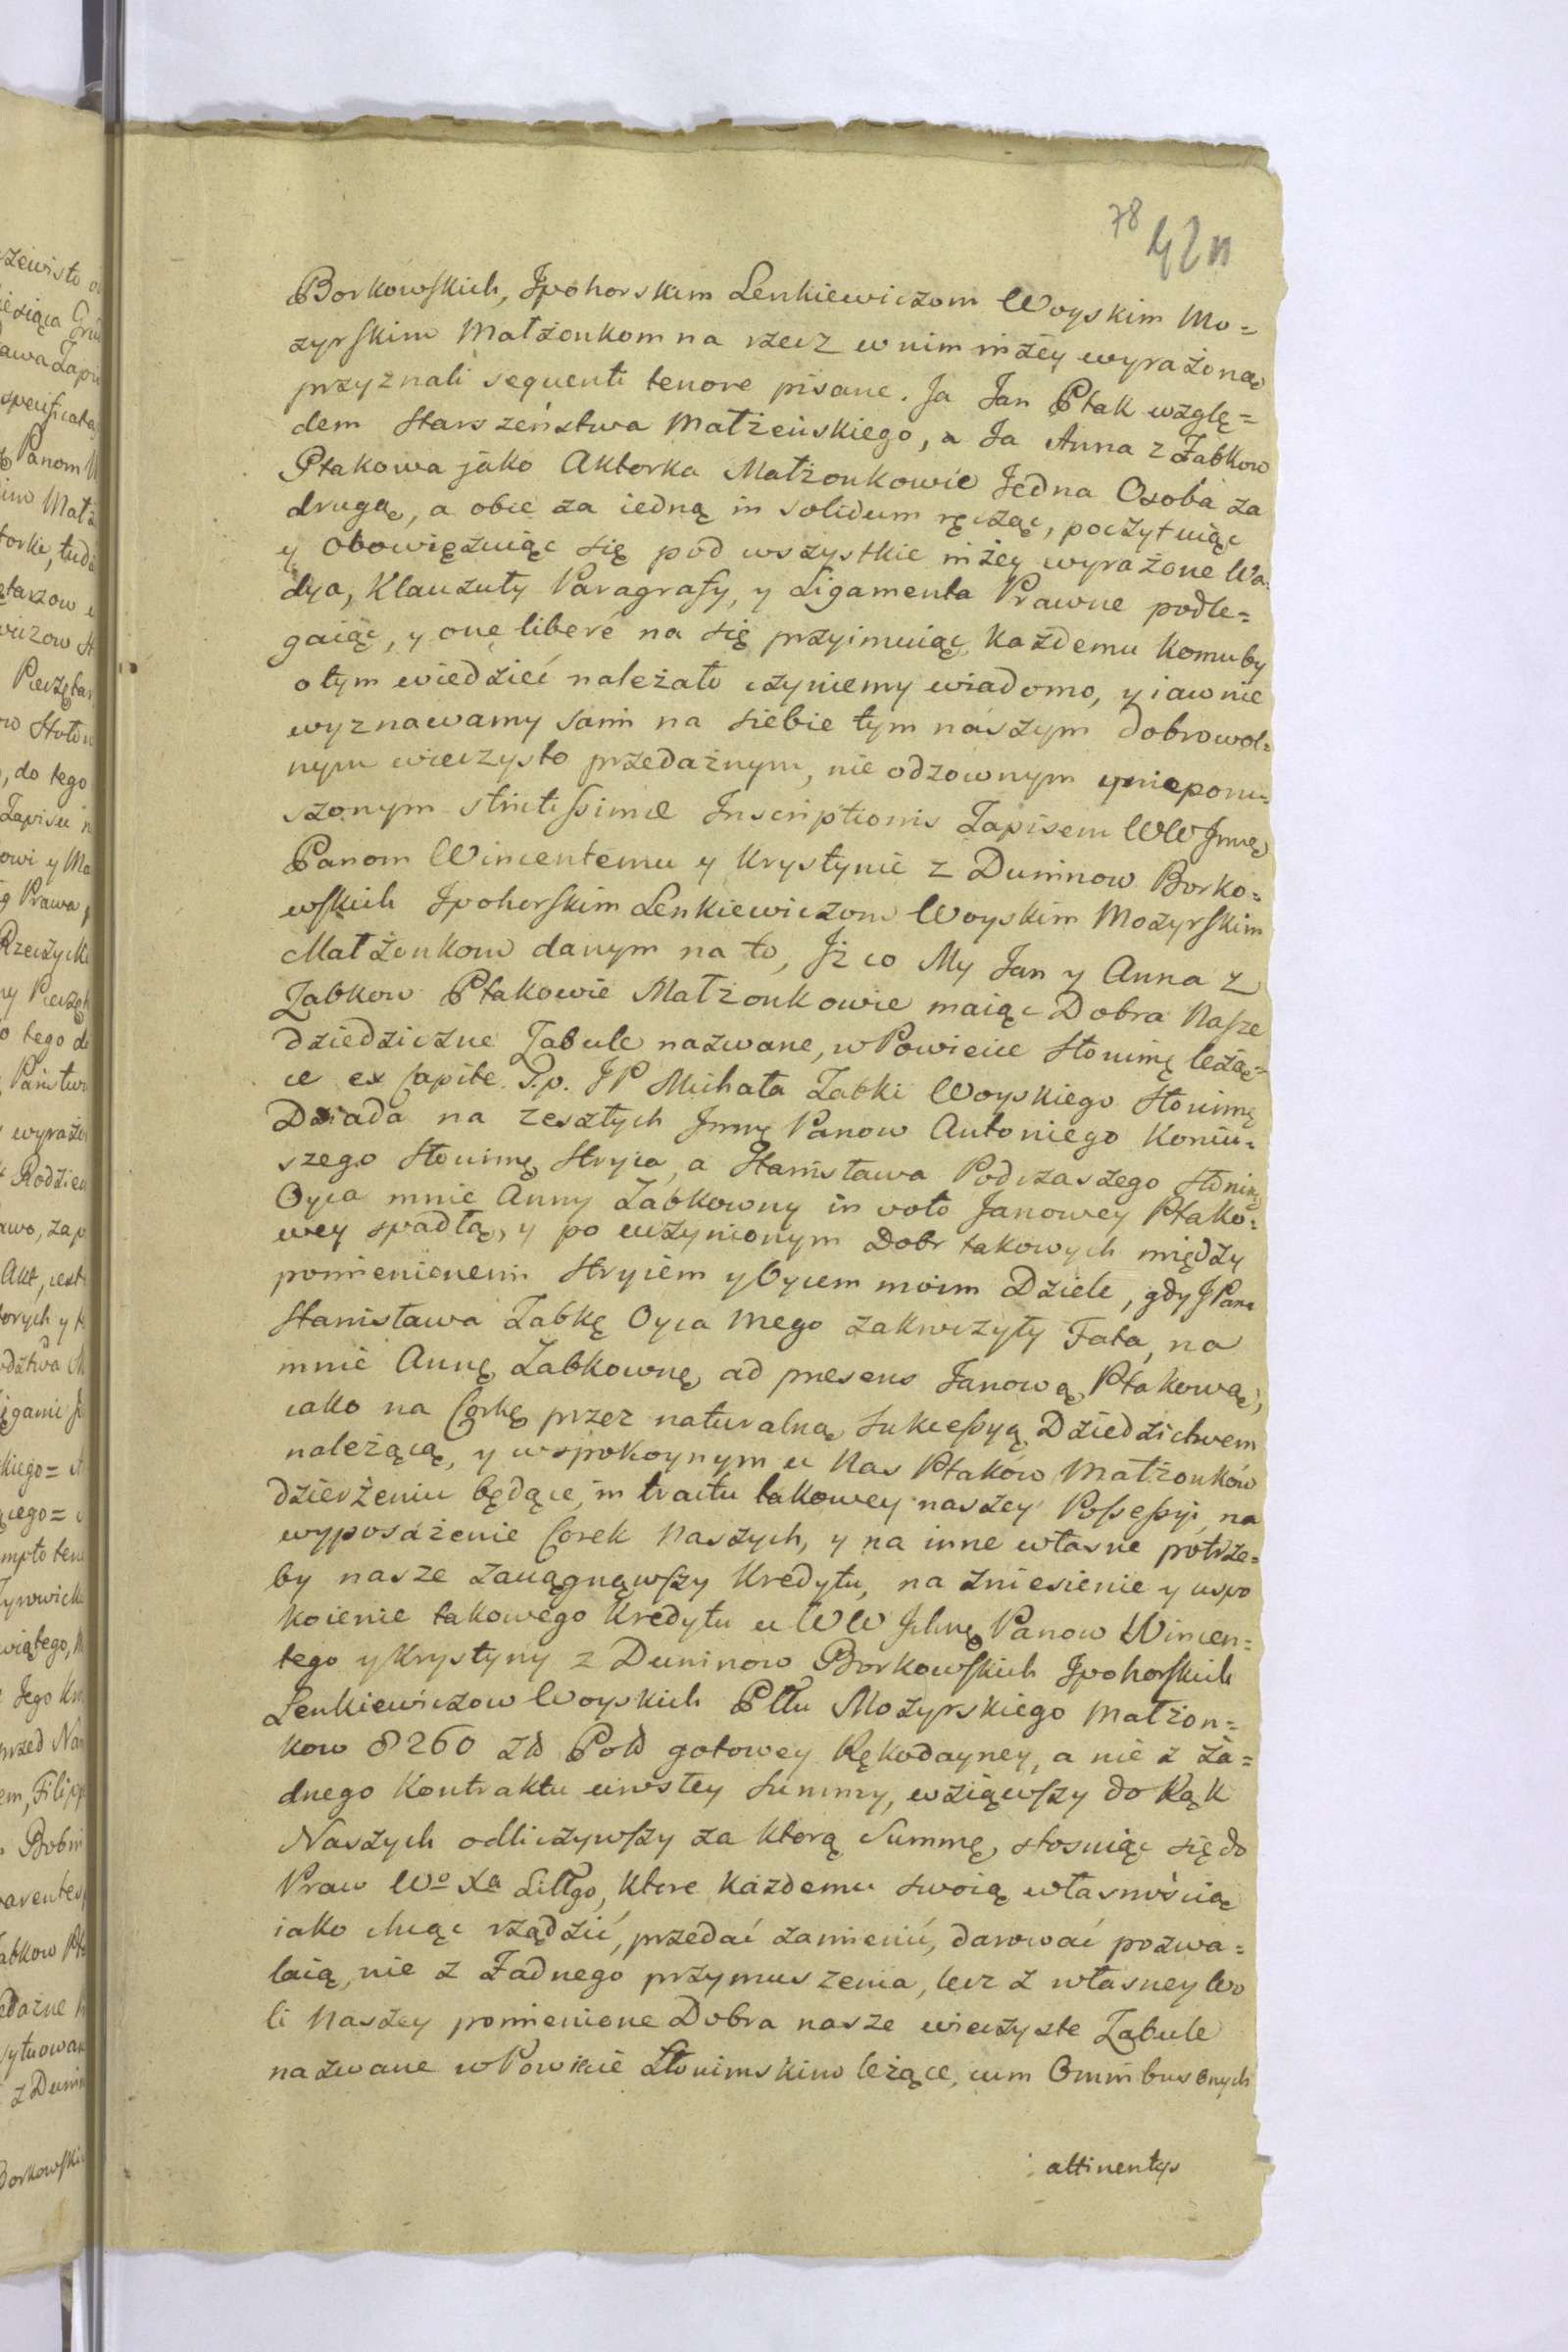 78
42
Borkowskich, Jpohorskim Lenkiewiczom Woyskim Mo=
zyrskim Małżonkom na rzecz w nim niżey wyrażoną
przyznali sequenti tenore pisane. Ja Jan Ptak wzglę=
dem Starszeństwa Małżeńskiego, a Ja Anna z Żabkow
Ptakowa jako Aktorka Małżonkowie Jedna Osoba za
drugą, a obie za iedną in solidum ręcząc, poczytuiąc
y obowięzuiąc się pod wszystkie niżey wyrażone Wa=
dya, Klauzuły Paragrafy, y Ligamenta Prawne podle=
gaiąc, y one liberé na się przyimuiąc każdemu komuby
o tym wiedzieć należało czyniemy wiadomo, y iawnie
wyznawamy sami na siebie tym naszym dobrowol=
nym wieczysto przedażnym, nie odzownym y nieporu=
szonym strictissimæ Inscriptionis Zapisem WW Jmć
Panom Wincentemu y Krystynie z Duninow Borko=
wskich Jpohorskim Lenkiewiczom Woyskim Mozyrskim
Małżonkom danym na to, Iż co My Jan y Anna z
Żabkow Ptakowie Małżonkowie maiąc Dobra Nasze
dziedziczne Zabule nazwane, w Powiecie Słonimę leżą=
ce ex Capite Ś.p. JP Michała Żabki Woyskiego Słonimę
Dziada na zeszłych Jmć Panow Antoniego Koniu=
szego Słonimę Stryia, a Stanisława Podczaszego Słonimę
Oyca mnie Anny Żabkowny in voto Janowey Ptako=
wey spadłą, y po uczynionym Dobr takowych między
pomienionemi Stryiem y Oycem moim Dziele, gdy JPana
Stanisława Żabkę Oyca mego zakroczyły Fata, na
mnie Annę Żabkownę, ad presens Janową Ptakową,
iako na Corkę przez naturalną Sukcessyą Dziedzictwem
należącą, y w spokoynym u Nas Ptaków Małżonków
dzierżeniu będące, in tractu takowey naszey Possessyi, na
wyposażenie Corek Naszych, y na inne własne potrze=
by nasze zaciągnąwszy Kredytu, na zniesienie y uspo
koienie takowego Kredytu u WW Ichmć Panow Wincen=
tego y Krystyny z Duninow Borkowskich Jpohorskich
Lenkiewiczow Woyskich Pttu Mozyrskiego Małżon=
kow 8260 zł Pol gotowey Rękodayney, a nie z ża=
dnego Kontraktu urostey Summy, wziąwszy do Rąk
Naszych odliczywszy za ktorą Summę, stosuiąc się do
Praw Wo Xa Littgo, ktore każdemu swoią własnością
iako chcąc rządzić, przedać zamienić, darować pozwa=
laią, nie z Żadnego przymuszenia, lecz z własney Wo
li Naszey pomienione Dobra nasze wieczyste Zabule
nazwane w Powiecie Słonimskim leżące, cum Omnibus Onych
attinentys